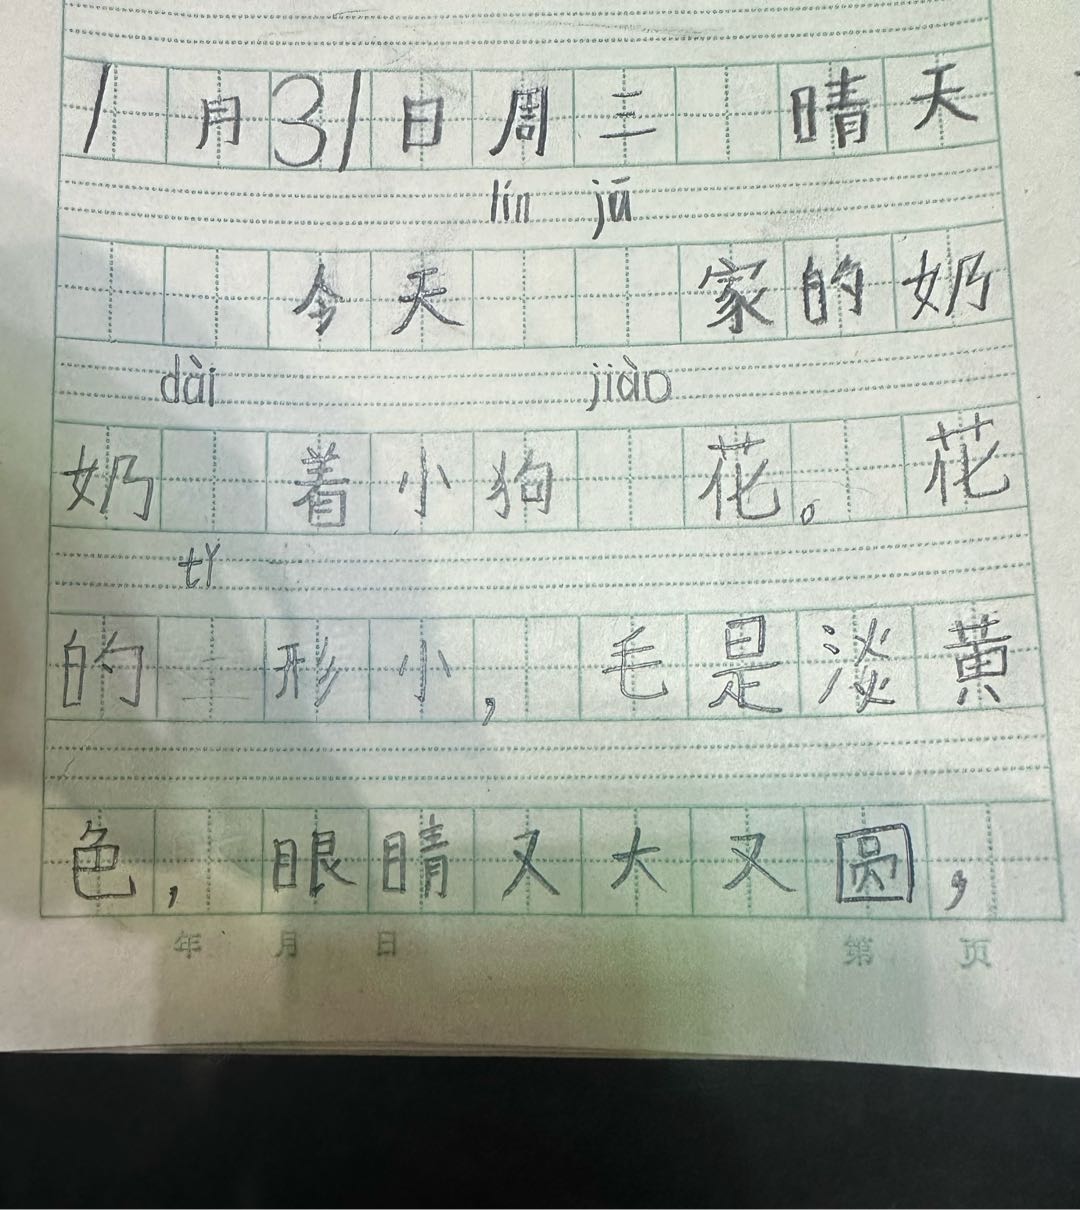 1月31日周三 晴天
lín jū
今天 家的奶
dài jiào
奶 着小狗 花。花
tǐ
的 形小，毛是淡黄
色，眼睛又大又圆，
年 月 日 第 页